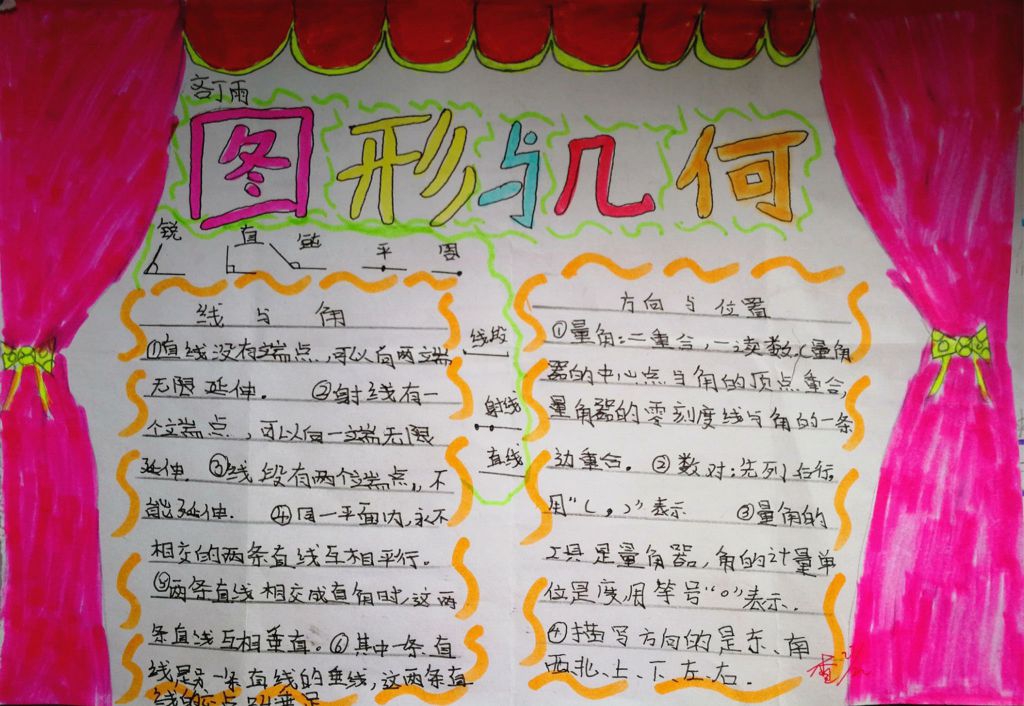 丁雨
图形与几何
锐 直 钝 平 周
线与角
①直线没有端点，可以向两端
无限延伸. ②射线有一
个端点，可以向一端无限
延伸. ③线段有两个端点，不
能延伸. ④同一平面内，永不
相交的两条直线互相平行。
⑤两条直线相交成直角时，这两
条直线互相垂直。⑥其中一条直
线是另一条直线的垂线，这两条直
线的 点叫垂足
线段
射线
直线
方向与位置
①量角:二重合，一读数.(量角
器的中心点与角的顶点重合，
量角器的零刻度线与角的一条
边重合。②数对:先列后行，
用“( , )”表示 ③量角的
工具是量角器，角的计量单
位是度，用符号“°”表示.
④描写方向的是东、南
西、北、上、下、左、右.